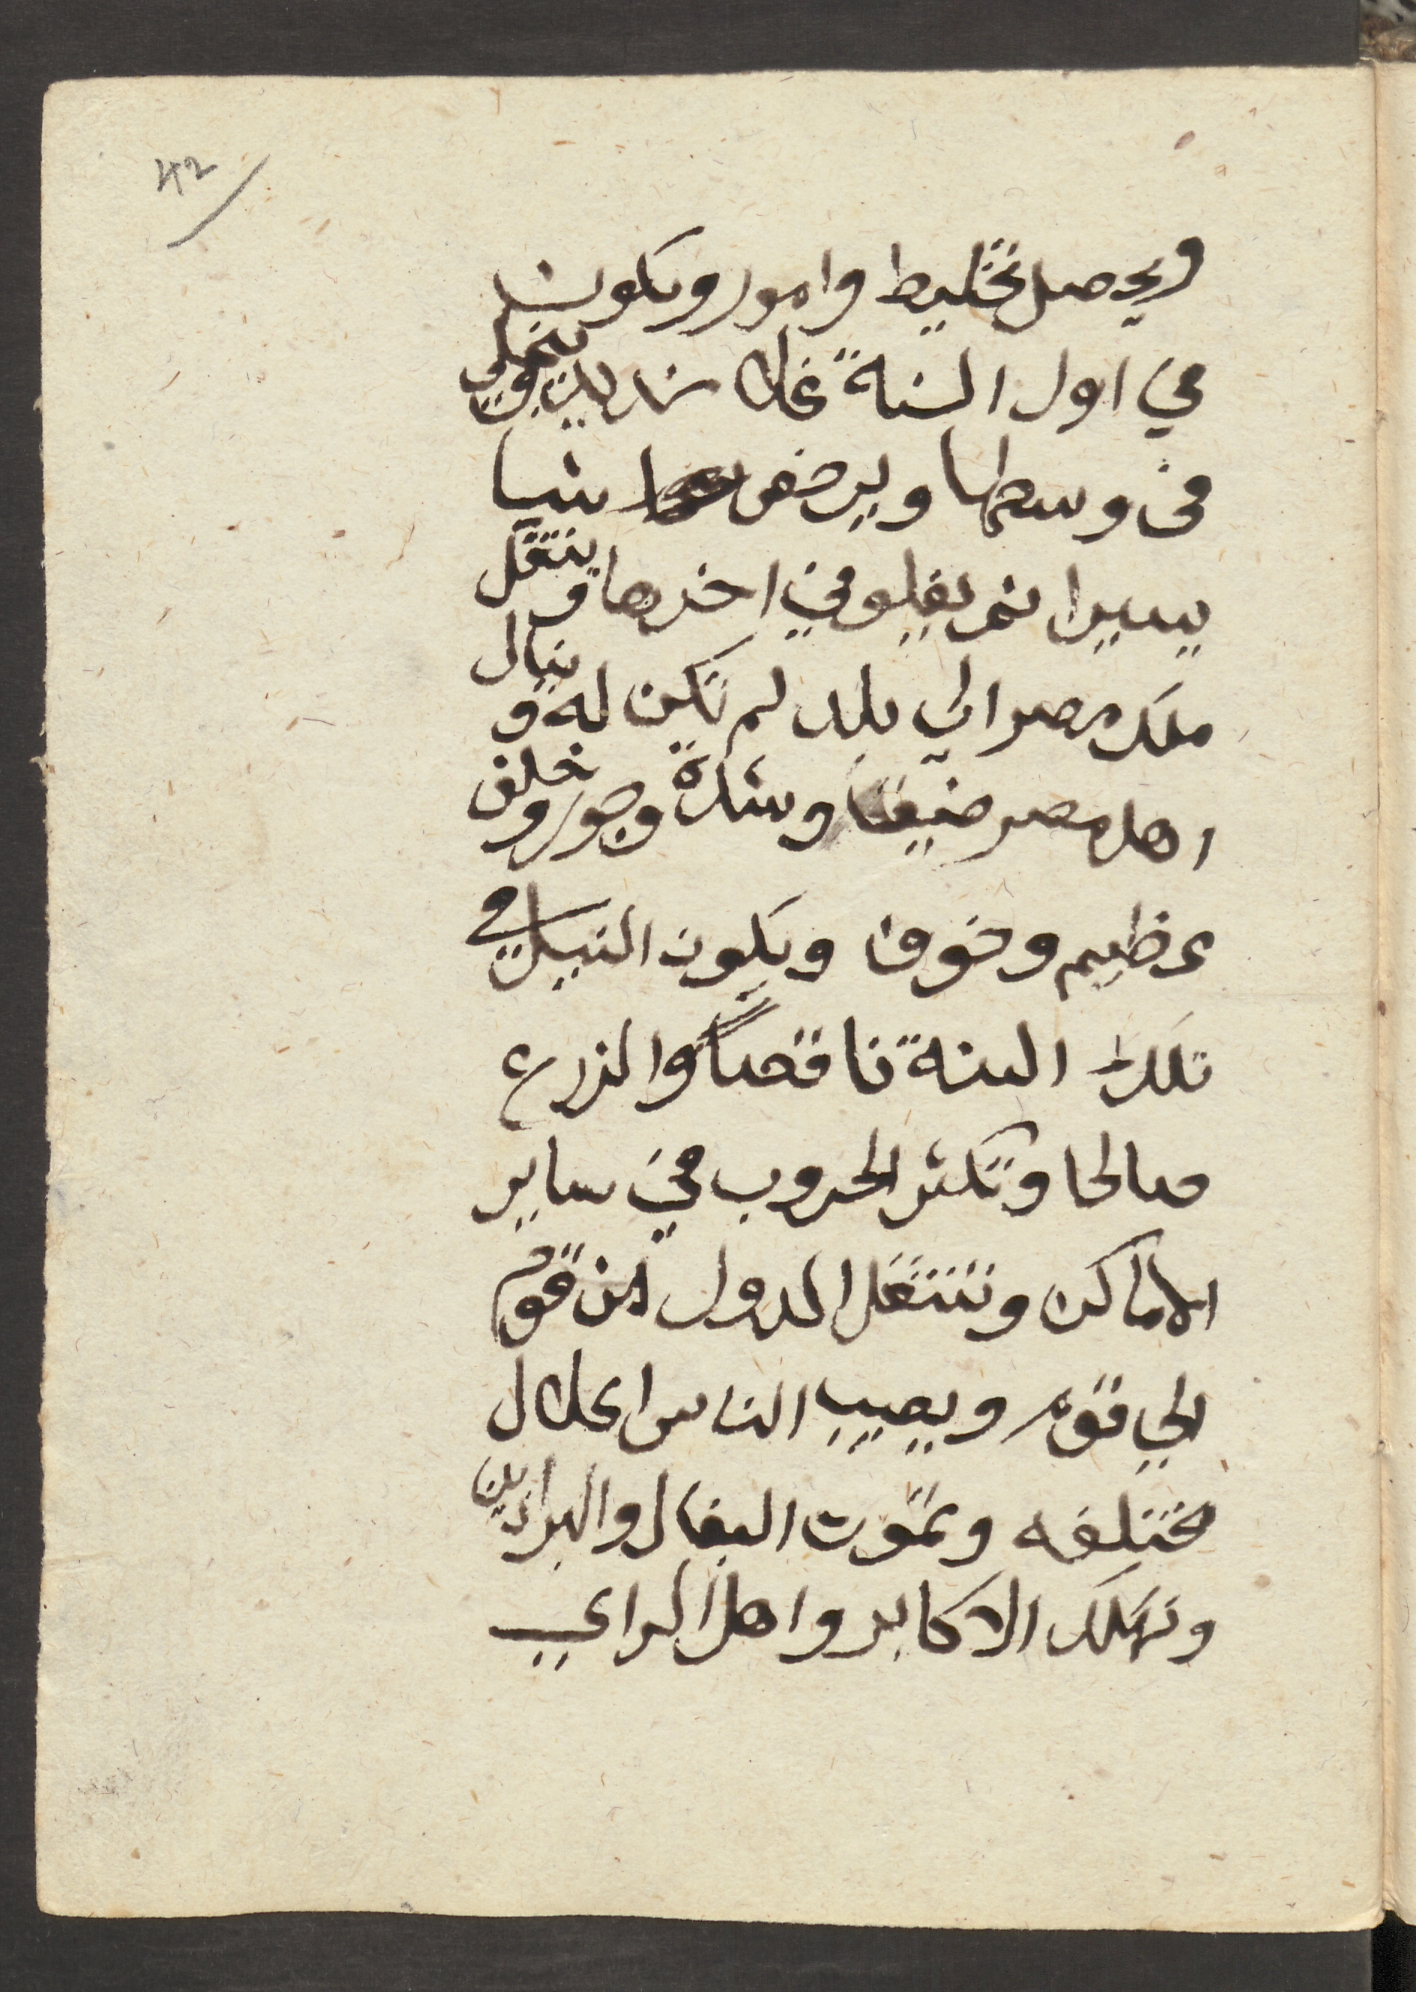 42
ويحصل تخليط وامور ويكون
في اول السنة غلا شديد وينجلي
في وسطها ويرخص شيا
يسيرا ثم يغلو في اخرها وينتقل
ملك مصر الي بلد لم تكن له وينال
اهل مصر ضيقا وشدة وجور وخلف
عظيم وخوف ويكون النيل في
تلك السنة ناقصاً والزرع
صالحا وتكثر الحروب في ساير
الاماكن وتنتقل الدول من قوم
الي قوم ويصيب الناس اعلال
مختلفه وتموت البغال والبراذين
وتهلك الاكابر واهل الراي